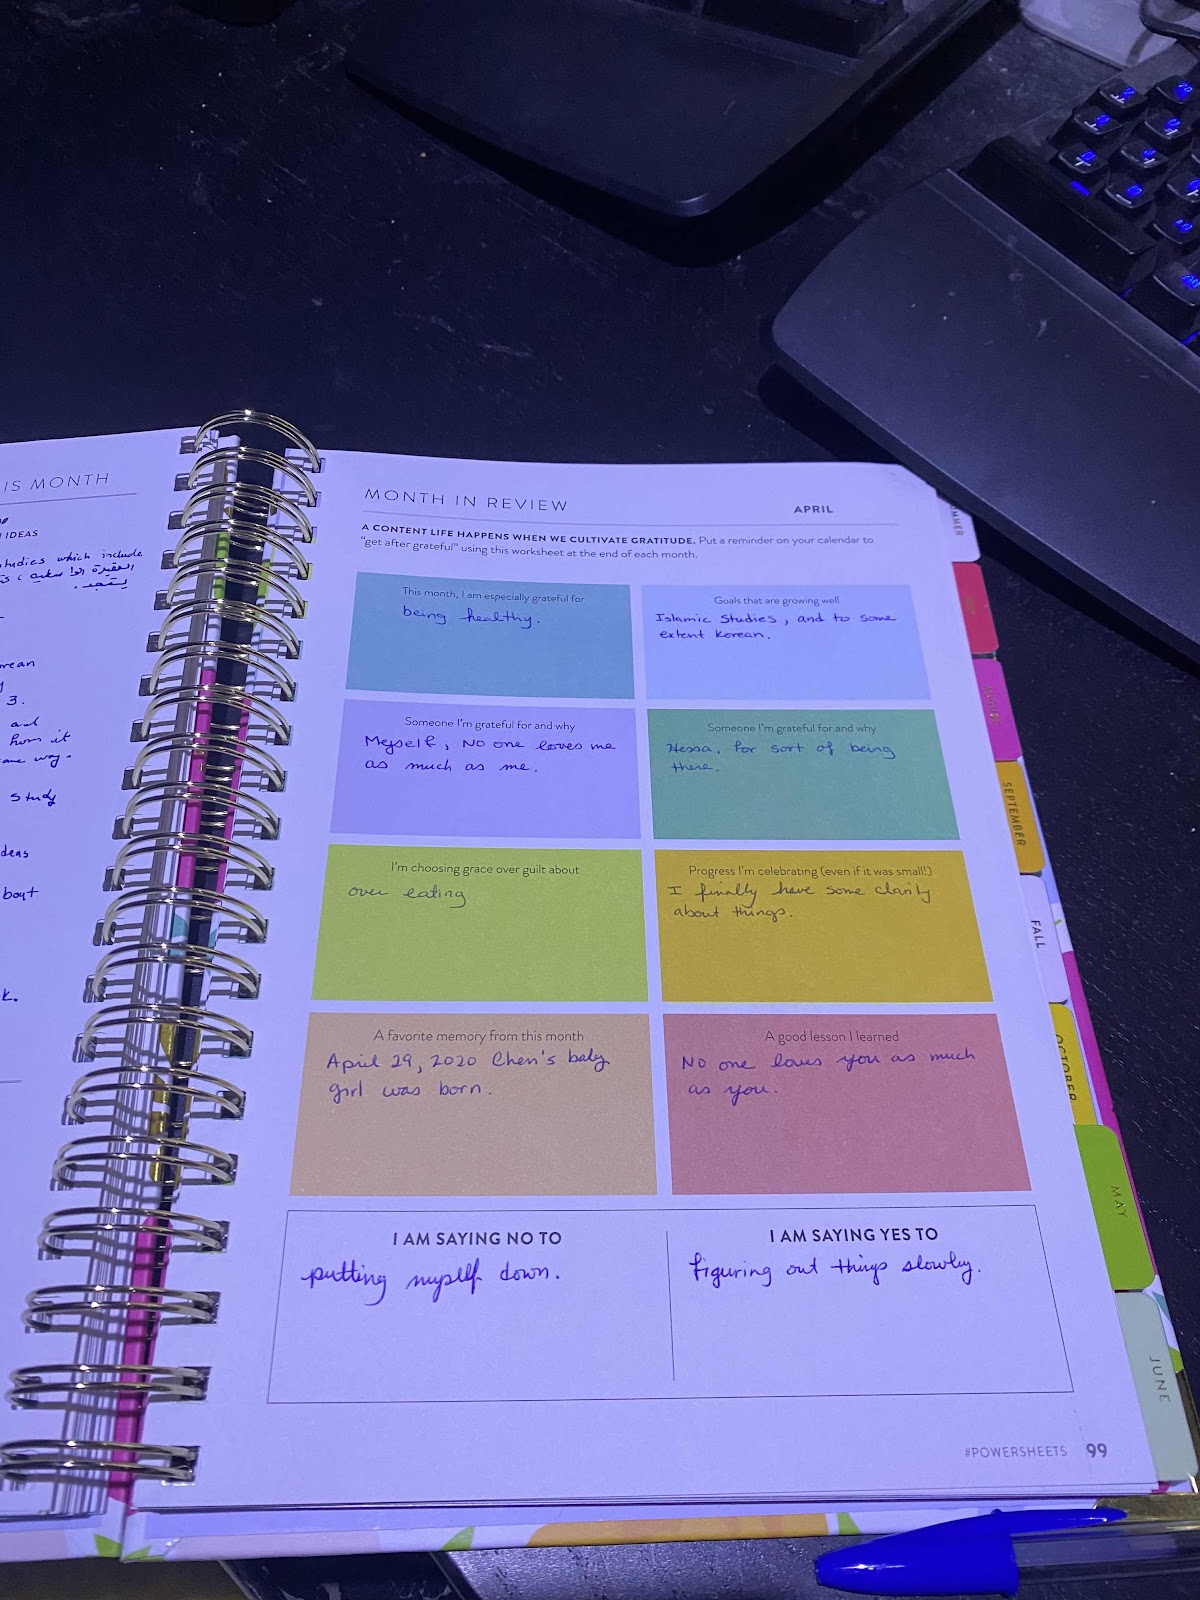 IS MONTH
IDEAS
studies which include
العقيدة الواسطية ،
rean
3.
and
how it
same way.
study
deas
bout
k.
MONTH IN REVIEW
APRIL
A CONTENT LIFE HAPPENS WHEN WE CULTIVATE GRATITUDE. Put a reminder on your calendar to
"get after grateful" using this worksheet at the end of each month.
This month, I am especially grateful for
being healthy.
Goals that are growing well
Islamic Studies, and to some
extent Korean.
Someone I'm grateful for and why
Myself, No one loves me
as much as me.
Someone I'm grateful for and why
Hessa, for sort of being
there.
I'm choosing grace over guilt about
over eating
Progress I'm celebrating (even if it was small!)
I finally have some clarity
about things.
A favorite memory from this month
April 29, 2020 Chen's baby
girl was born.
A good lesson I learned
No one loves you as much
as you.
I AM SAYING NO TO
putting myself down.
I AM SAYING YES TO
figuring out things slowly.
#POWERSHEETS 99
UMMER
SEPTEMBER
FALL
OCTOBER
MAY
JUNE